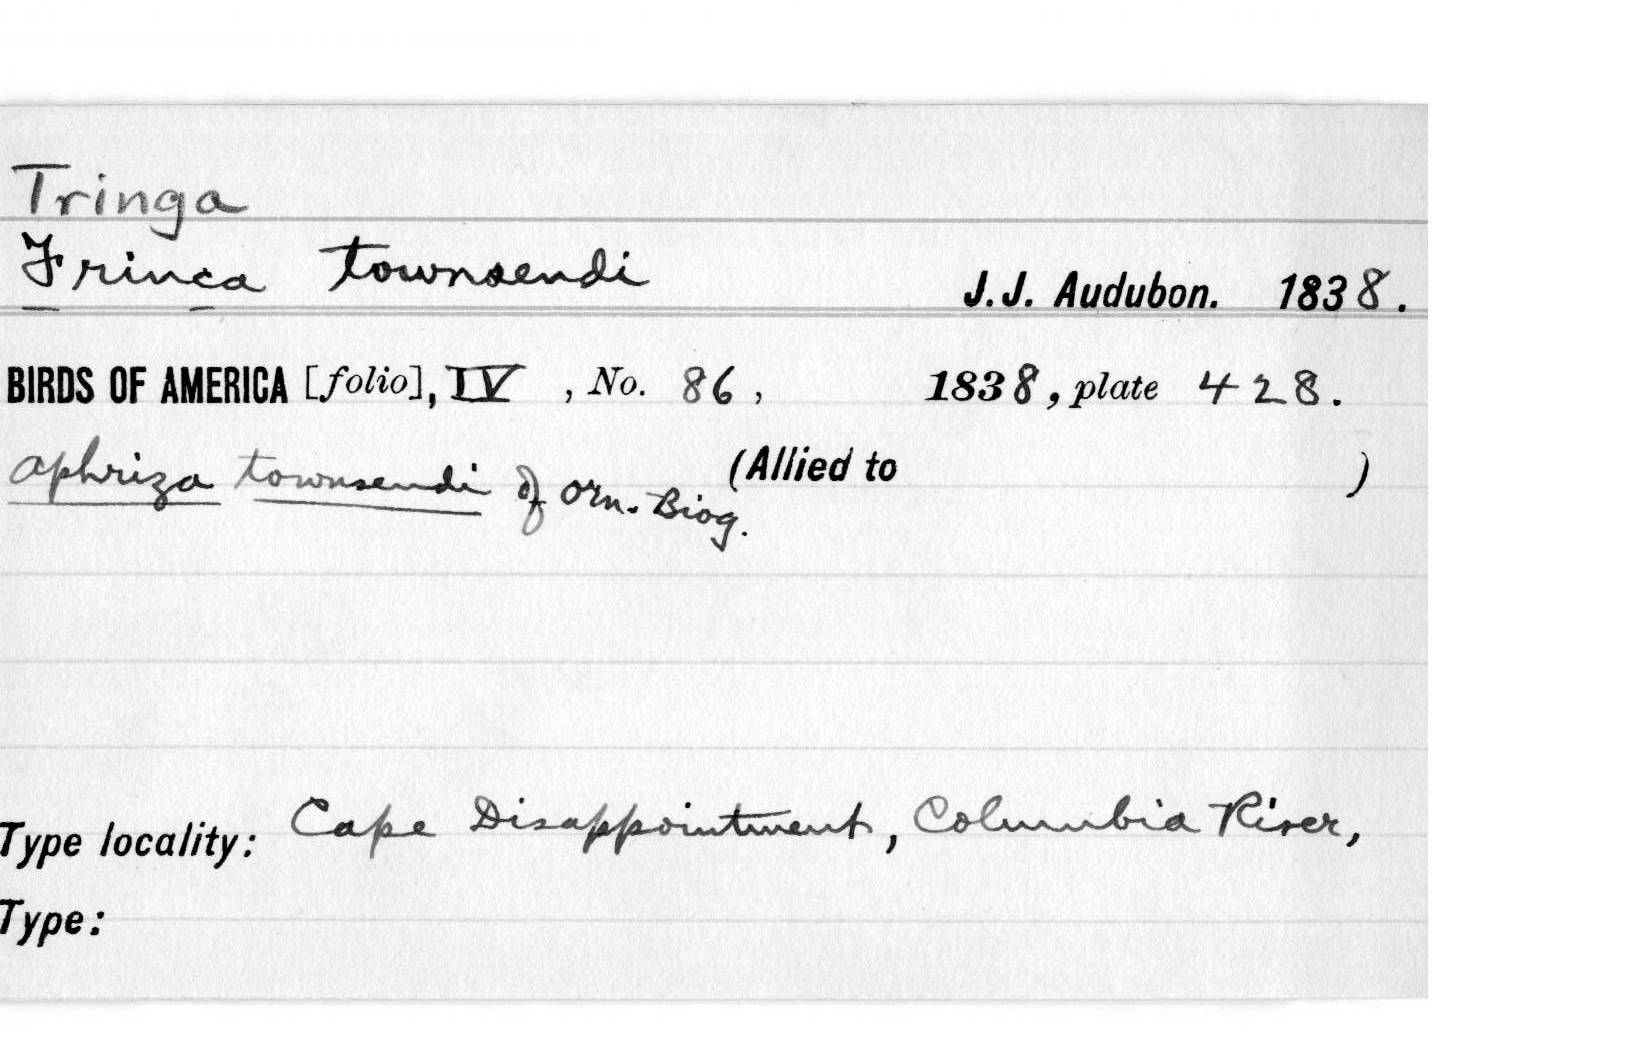 Tringa
Frinca townsendi J. J. Audubon. 1838.
BIRDS OF AMERICA [folio], IV , No. 86 , 1838, plate 428.
Aphriza townsendi of Orn. Biog. (Allied to )
Type locality: Cape Disappointment, Columbia River,
Type: